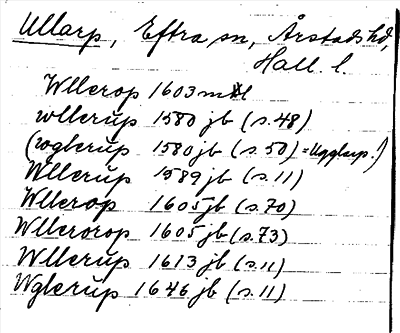 Ullarp, Eftra sn, Årstads hd,
Hall. l.
Wllerop 1603 mtl
wllerup 1580 jb (s.48)
(wglerup 1580 jb (s.50) = Ugglarp.)
Wllerup 1589 jb (s.11)
Wllerop 1605 jb (s.70)
Wllerorop 1605 jb (s.73)
Wllerup 1613 jb (s.11)
Wglerup 1646 jb (s.11)